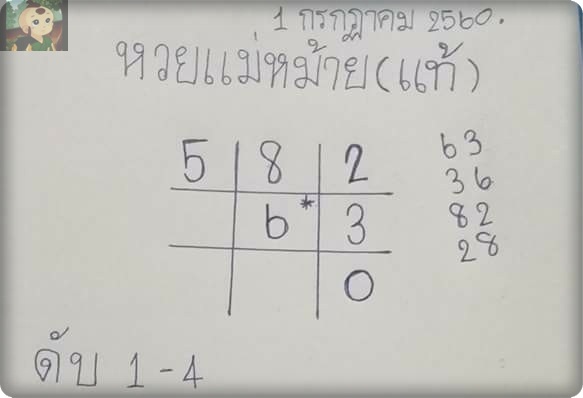 1 กรกฎาคม 2560.
หวยแม่หม้าย(แท้)
5 8 2
6* 3
0
63
36
82
28
ดับ 1-4